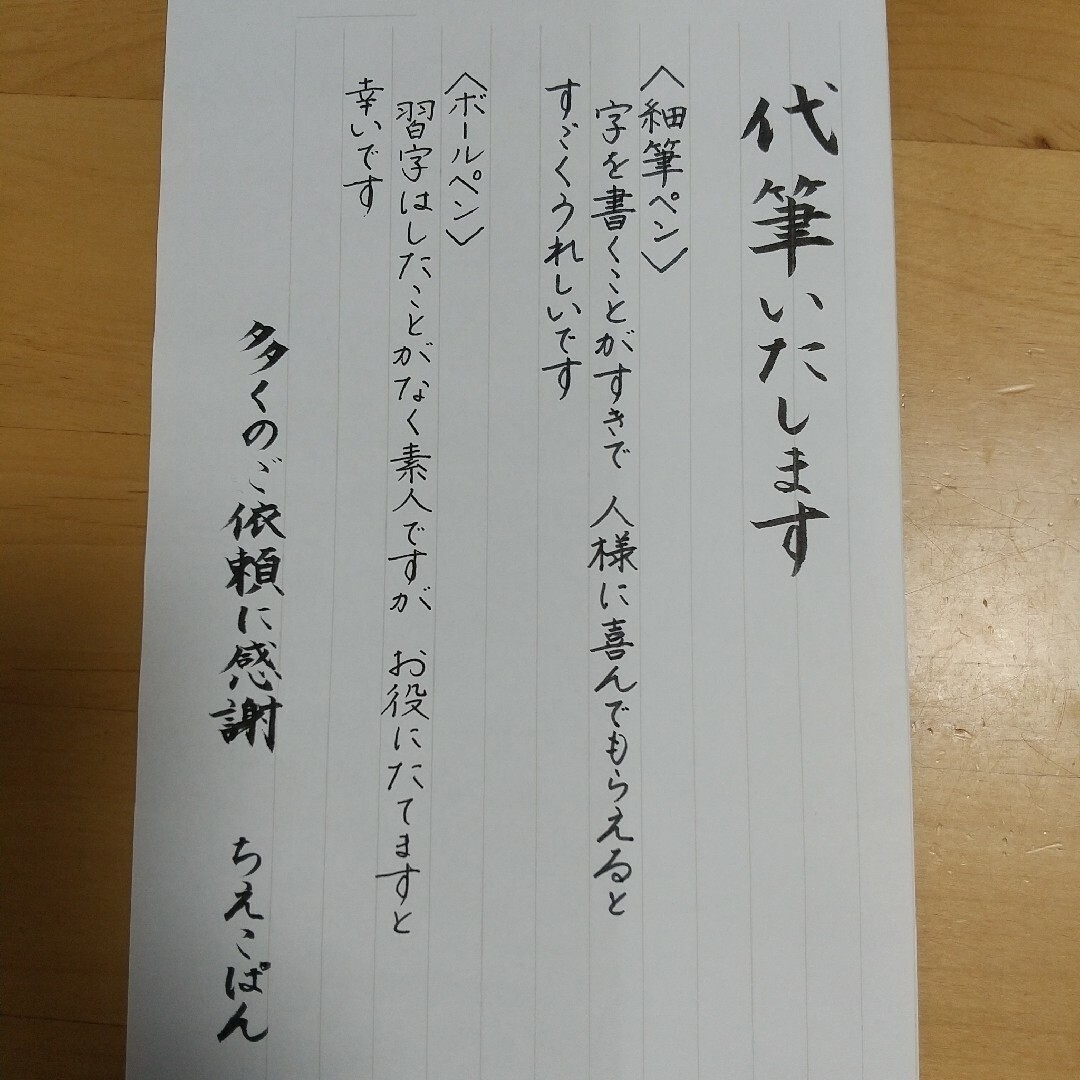 代筆いたします
〈細筆ペン〉
字を書くことがすきで 人様に喜んでもらえると
すごくうれしいです
〈ボールペン〉
習字はしたことがなく素人ですが お役にたてますと
幸いです
多くのご依頼に感謝 ちえこぱん